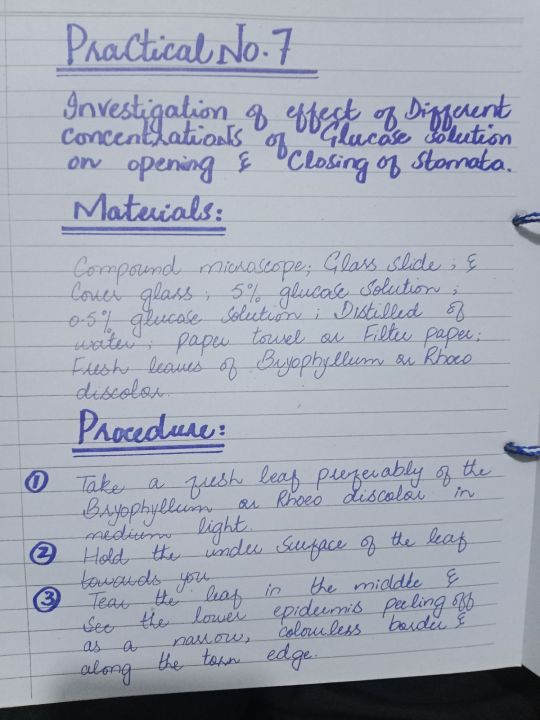 Practical No. 7
Investigation of effect of Different
concentrations of Glucose solution
on opening & Closing of Stomata.
Materials:
Compound microscope; Glass slide ; &
Cover glass ; 5% glucose solution ;
0.5% glucose solution ; Distilled of
water ; paper towel or Filter paper;
Fresh leaves of Bryophyllum or Rhoeo
discolor.
Procedure:
① Take a fresh leaf preferably of the
Bryophyllum or Rhoeo discolor in
medium light.
② Hold the under surface of the leaf
towards you
③ Tear the leaf in the middle &
see the lower epidermis peeling off
as a narrow, colourless border &
along the torn edge.